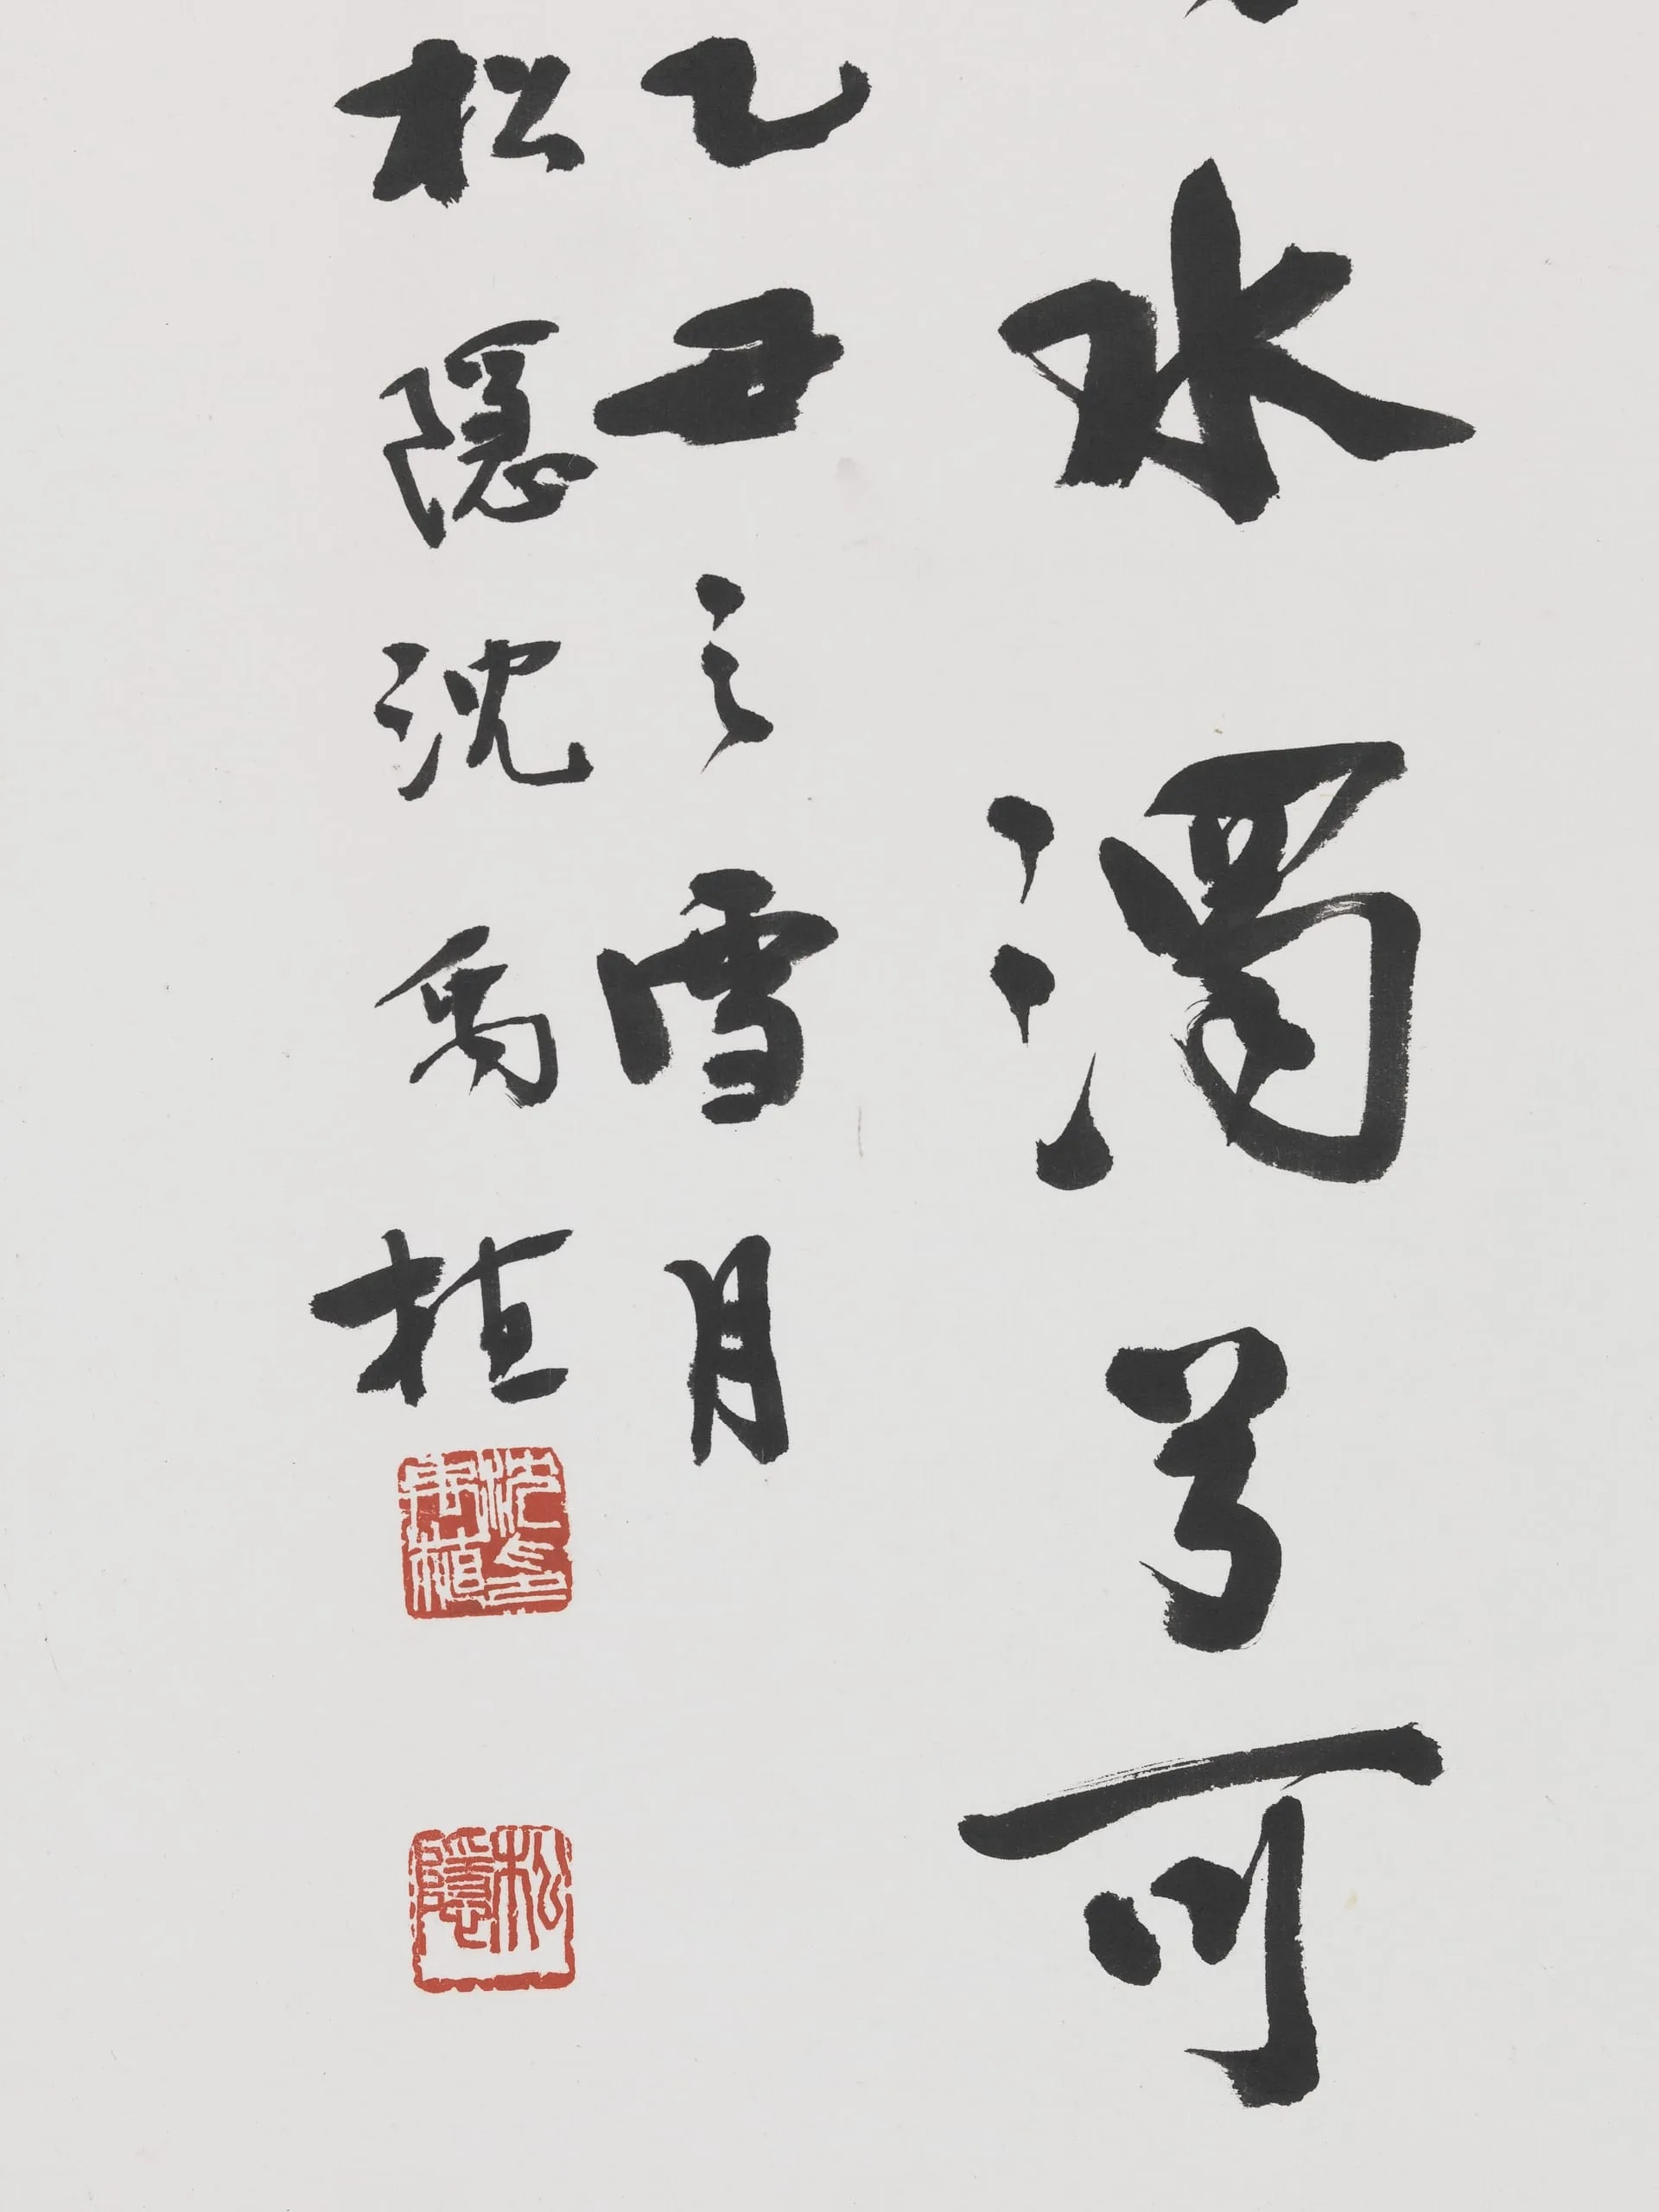 水濁兮可
乙丑之雪月
松隱沈禹植
沈禹植印
松隱